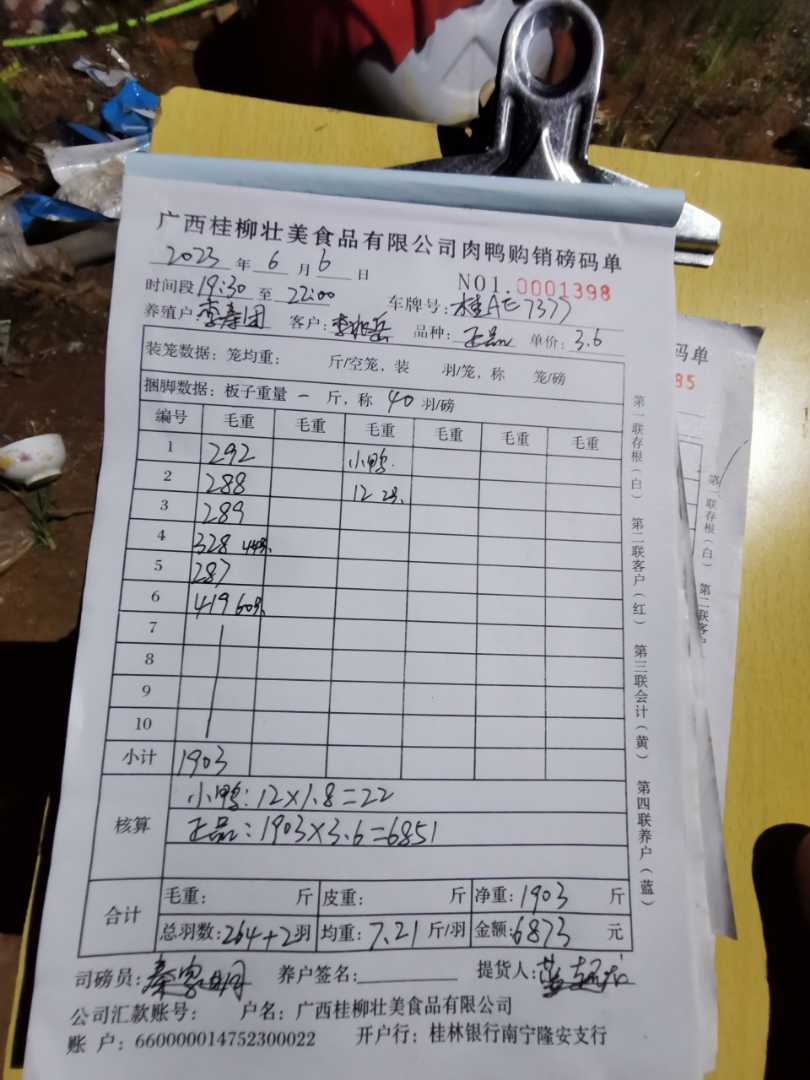 广西桂柳壮美食品有限公司肉鸭购销磅码单
2023 年 6 月 6 日 NO1.0001398
时间段 19:30 至 22:00 车牌号: 桂AE7377
养殖户 李寿团 客户: 李兆岳 品种: 正品 单价: 3.6
装笼数据: 笼均重: 斤/空笼, 装 羽/笼, 称 笼/磅
捆脚数据: 板子重量 一 斤, 称 40 羽/磅
编号 毛重 毛重 毛重 毛重 毛重 毛重
1 292 小鸭.
2 288 12 2羽.
3 289
4 328 44羽.
5 287
6 419 60羽.
7
8
9
10
小计 1903
核算 小鸭: 12×1.8=22
正品: 1903×3.6=6851
合计 毛重: 斤 皮重: 斤 净重: 1903 斤
总羽数: 264+2羽 均重: 7.21 斤/羽 金额: 6873 元
司磅员: 养户签名: 提货人:
公司汇款账号: 户名: 广西桂柳壮美食品有限公司
账 户: 660000014752300022 开户行: 桂林银行南宁隆安支行
第一联存根(白) 第二联客户(红) 第三联会计(黄) 第四联养户(蓝)
码单
85
第一联存根(白) 第二联客户